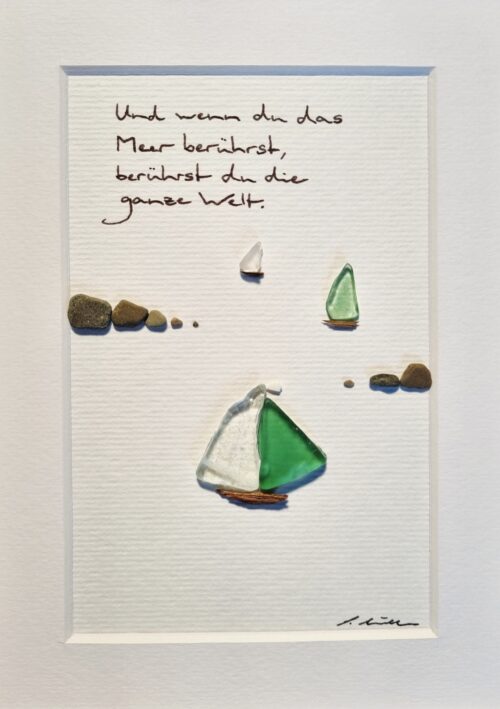 Und wenn du das
Meer berührst,
berührst du die
ganze Welt.